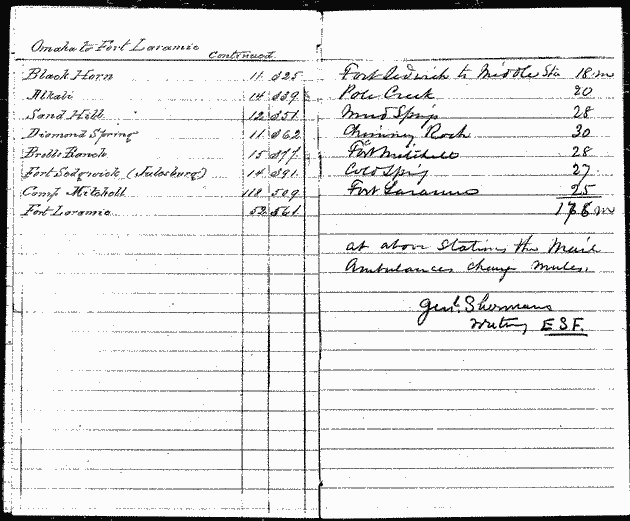 Omaha to Fort Laramie
Continued
Black Horn 11 325
Alkali 14 339
Sand Hill 12 351
Diamond Spring 11 362
Bretts Ranch 15 377
Fort Sedgwick (Julesburg) 14 391
Camp Mitchell 118 509
Fort Laramie 52 561
Fort Sedwick to Middle Sta 18 m
Pole Creek 20
Mud Spngs 28
Chimney Rock 30
Fort Mitchell 28
Cold Spring 27
Fort Laramie 25
176 m
at above Stations the Mail
Ambulances change mules.
Genl. Shermans
writing E.S.F.